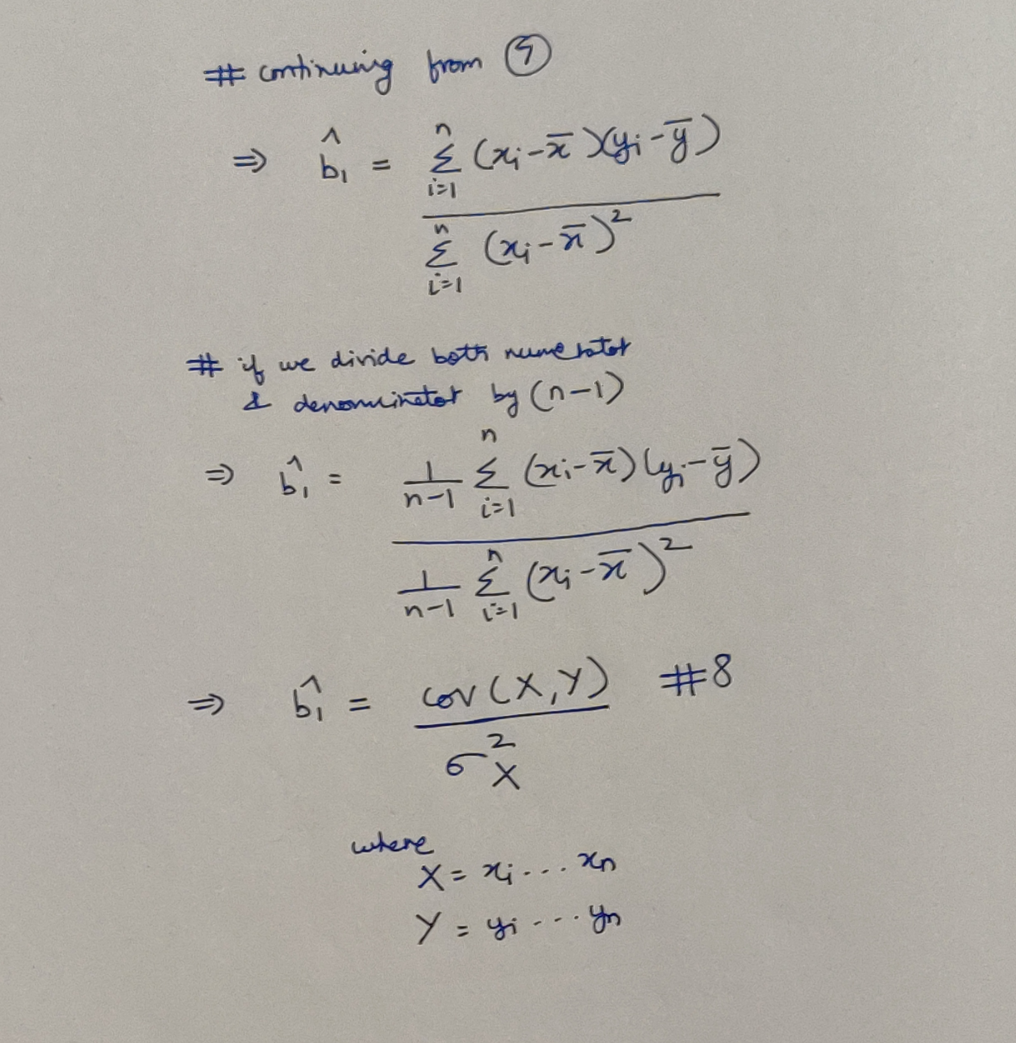 # continuing from ⑦
⇒ b̂₁ = Σᵢ₌₁ⁿ (xᵢ-x̄)(yᵢ-ȳ)
Σᵢ₌₁ⁿ (xᵢ-x̄)²
# if we divide both numerator
& denominator by (n-1)
⇒ b̂₁ = 1/n-1 Σᵢ₌₁ⁿ (xᵢ-x̄)(yᵢ-ȳ)
1/n-1 Σᵢ₌₁ⁿ (xᵢ-x̄)²
⇒ b̂₁ = cov(X,Y) #8
σ²X
where
X = xᵢ... xₙ
Y = yᵢ ... yₙ